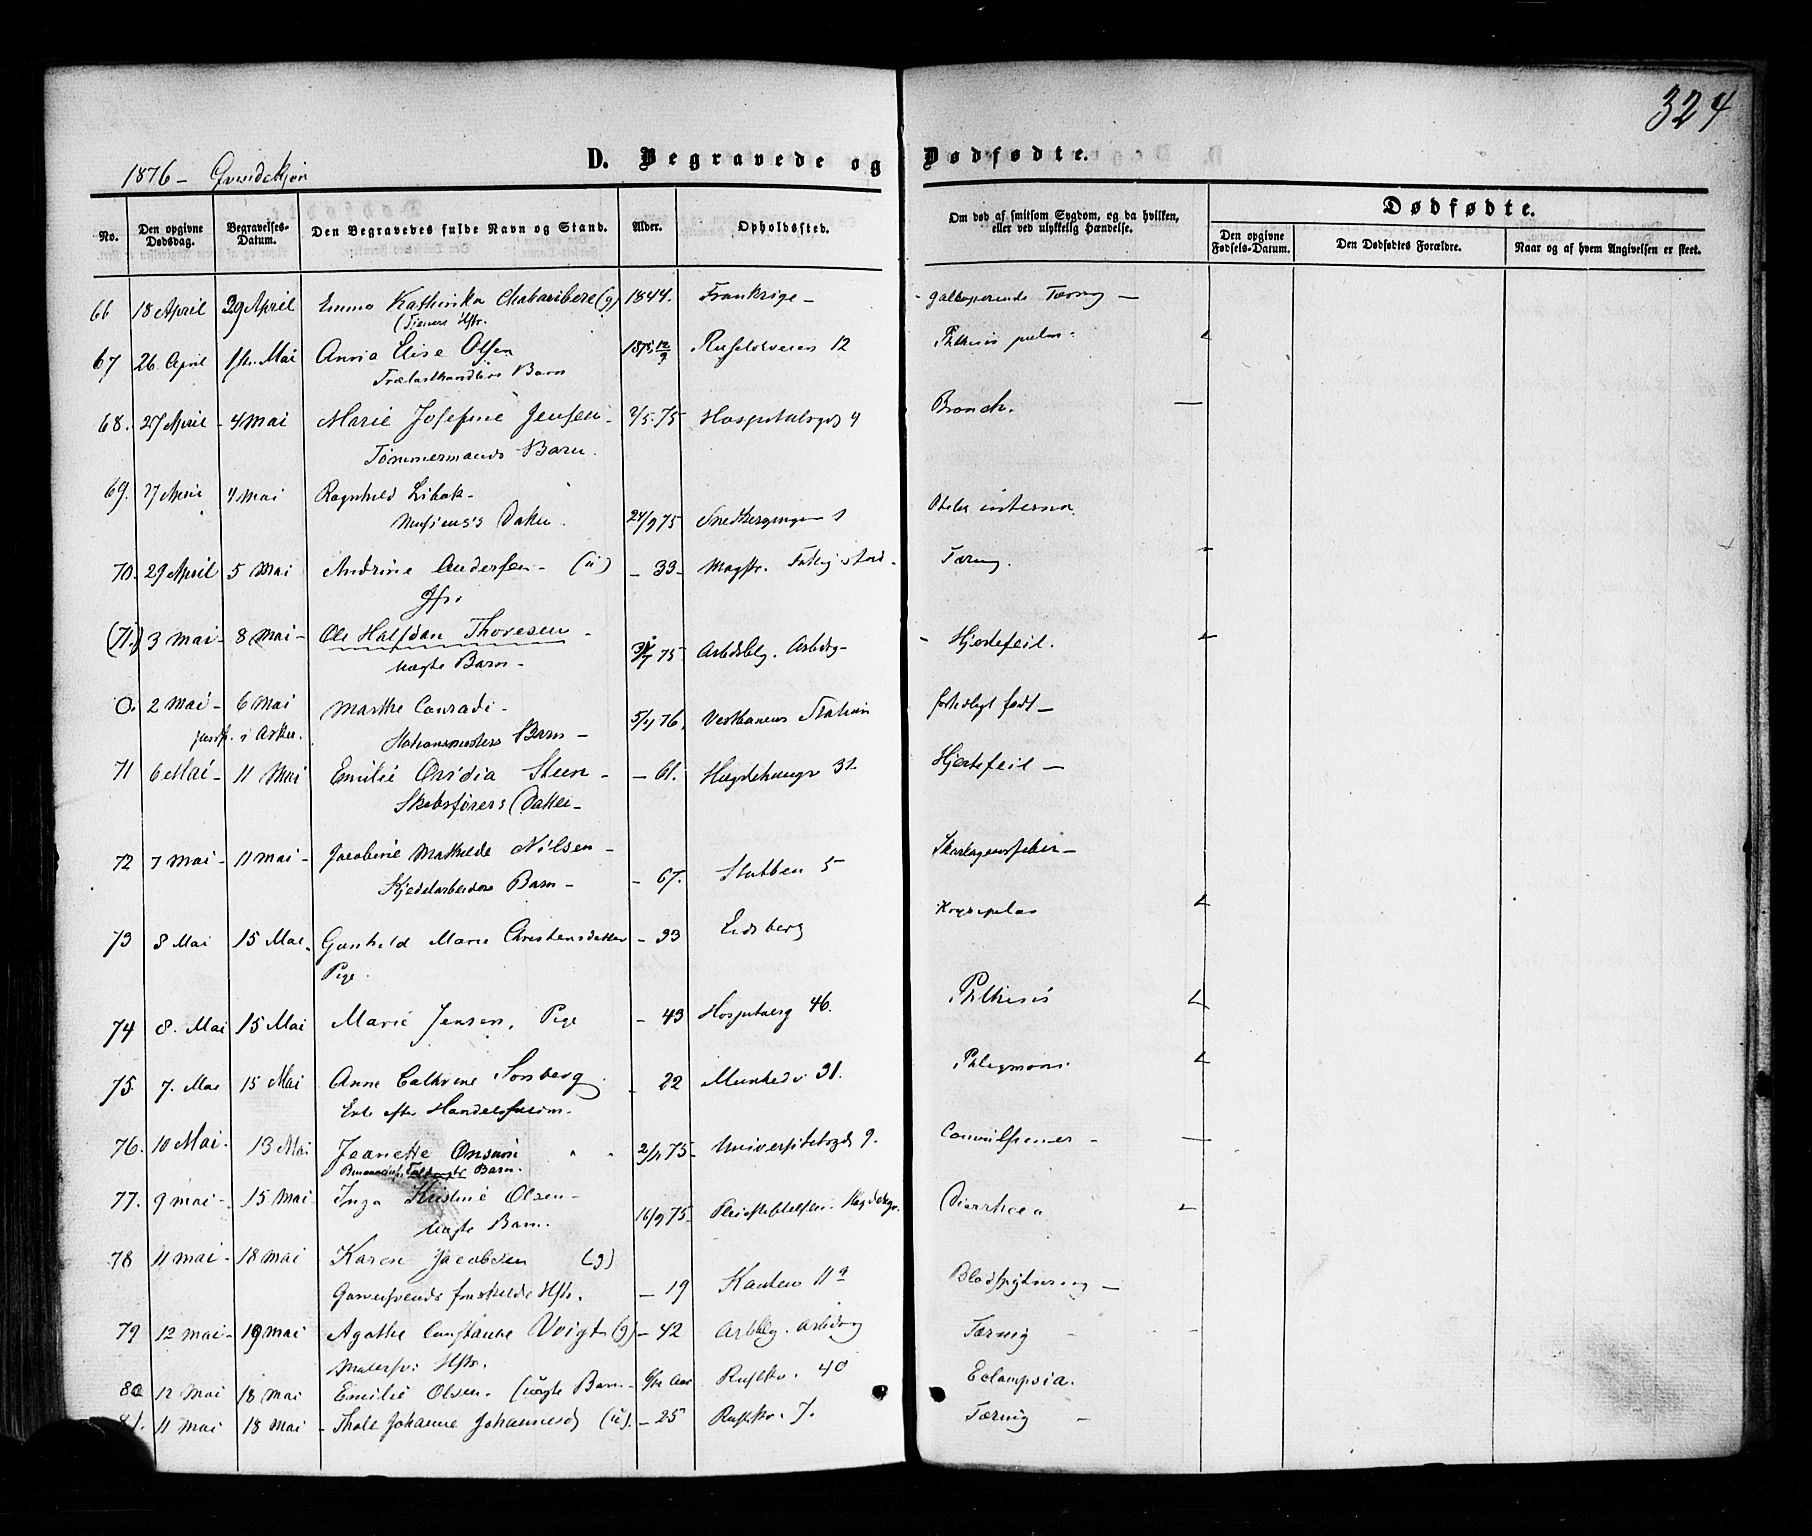 324
1876 – Qvindekjøn
D. Begravede og Dødfødte.
No.
Den opgivne Dødsdag.
Begravelses-Datum.
Den Begravedes fulde Navn og Stand.
Alder.
Opholdssted.
Om død af smitsom Sygdom, og da hvilken, eller ved ulykkelig Hændelse.
Dødfødte.
Den opgivne Fødsels-Datum.
Den Dødfødtes Forældre.
Naar og af hvem Angivelsen er skeet.
66 18 April 29 April Emma Katherika (g) 1844. Frankrige – galloperende Tæring –
Hstr.
67 26 April 1ste Mai Anna Elise Olsen 1875 12/9 12 Phthisis pulm.
Trælasthandlers Barn
68. 27 April – 4 Mai Marie Josefine Jensen – 2/5. 75 Hospitalsgd 4 Bronch. —
Tømmermands Barn.
69. 27 April 4 Mai Ragnhild
Datter. 24/9 75 Snedkergangen 1 interna
70. 29 April 5 Mai Andrine Andersen – (u) – 33 – Magstr. Tæring.
Jfr.
(71.) 3 Mai – 8 Mai – Ole Halfdan Thoresen – 75 Arbdsblg. – Hjertefeil.
Uægte Barn –
0. 2 Mai – 6 Mai Marthe Conradi – 5/4 76, Vestbanens Station fortidligt født –
jordf. i Asker. Stationsmesters Barn –
71 6 Mai – 11 Mai Emilie Steen – – 61. Hægdehaugs 31. Hjertefeil –
Skibsførers Datter –
72 7 Mai – 11 Mai – Jacobine Mathilde Nilsen – Skarlagensfeber –
Kjedelarbeiders Barn – – 67. Stubben 5
73 8 Mai 15 Mai – Gunhild Marie Christensdatter – 33 Eidsberg
Pige.
74 8. Mai 15 Mai Marie Jensen, Pige – 43 46. Phthisis
75. 7. Mai 15 Mai Anne Cathrine – 22 Munkedv 31. Phlegmone
Enke efter
76. 10 Mai. 13 Mai Jeanette Onsum " " 2/11 75 – Universitetsgd 9. Convulsioner – —
Barn.
77. 9 mai – 15 Mai – Inga Kristine Olsen – 16/9 75 – Pleiestiftelsen. Diarrhoea
Uægte Barn.
78 11 mai – 18 mai Karen Jacobsen (g)
fraskilde Hstr. – 19 Kanten 11 a Blodspytning –
79 12 mai – 19 mai Agathe Constance Voigt (g) – 42 Arbblg. Tæring
Malersv: Hstr.
80 12 Mai 18 mai Emilie Olsen. (uægte Barn – Aar 40 Eclampsia.
81. 11 Mai 18 Mai – Thale Johanne Johannesd (u). – 25 7. Tæring